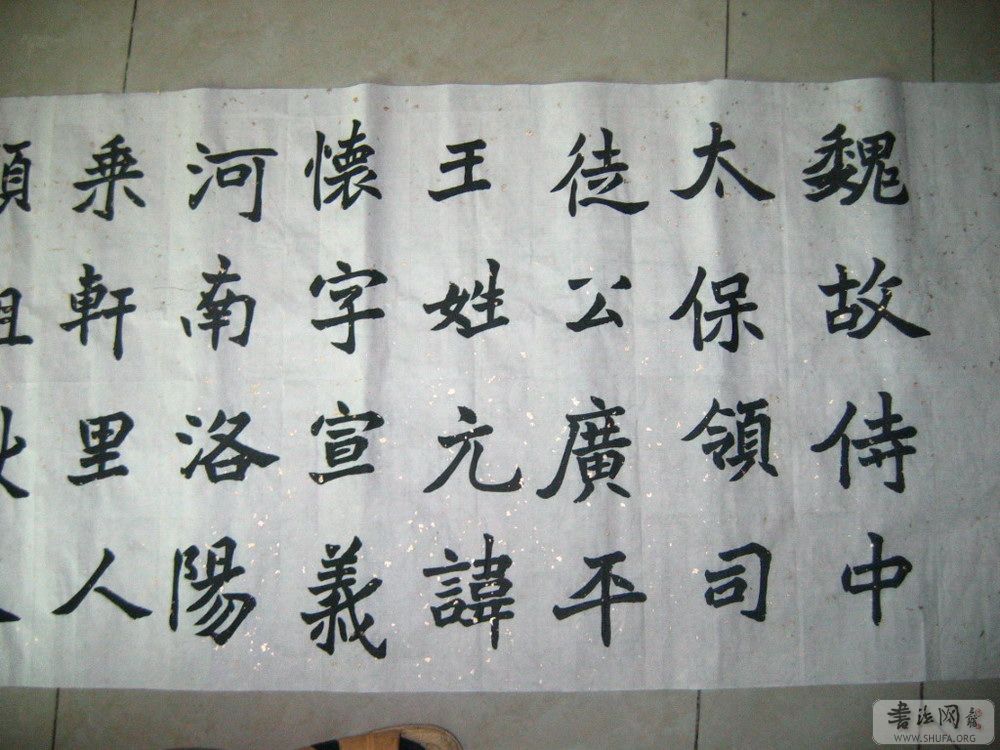 魏故侍中
太保領司
徒公廣平
王姓元諱
懷字宣義
河南洛陽
乗軒里人
書法网
WWW.SHUFA.ORG